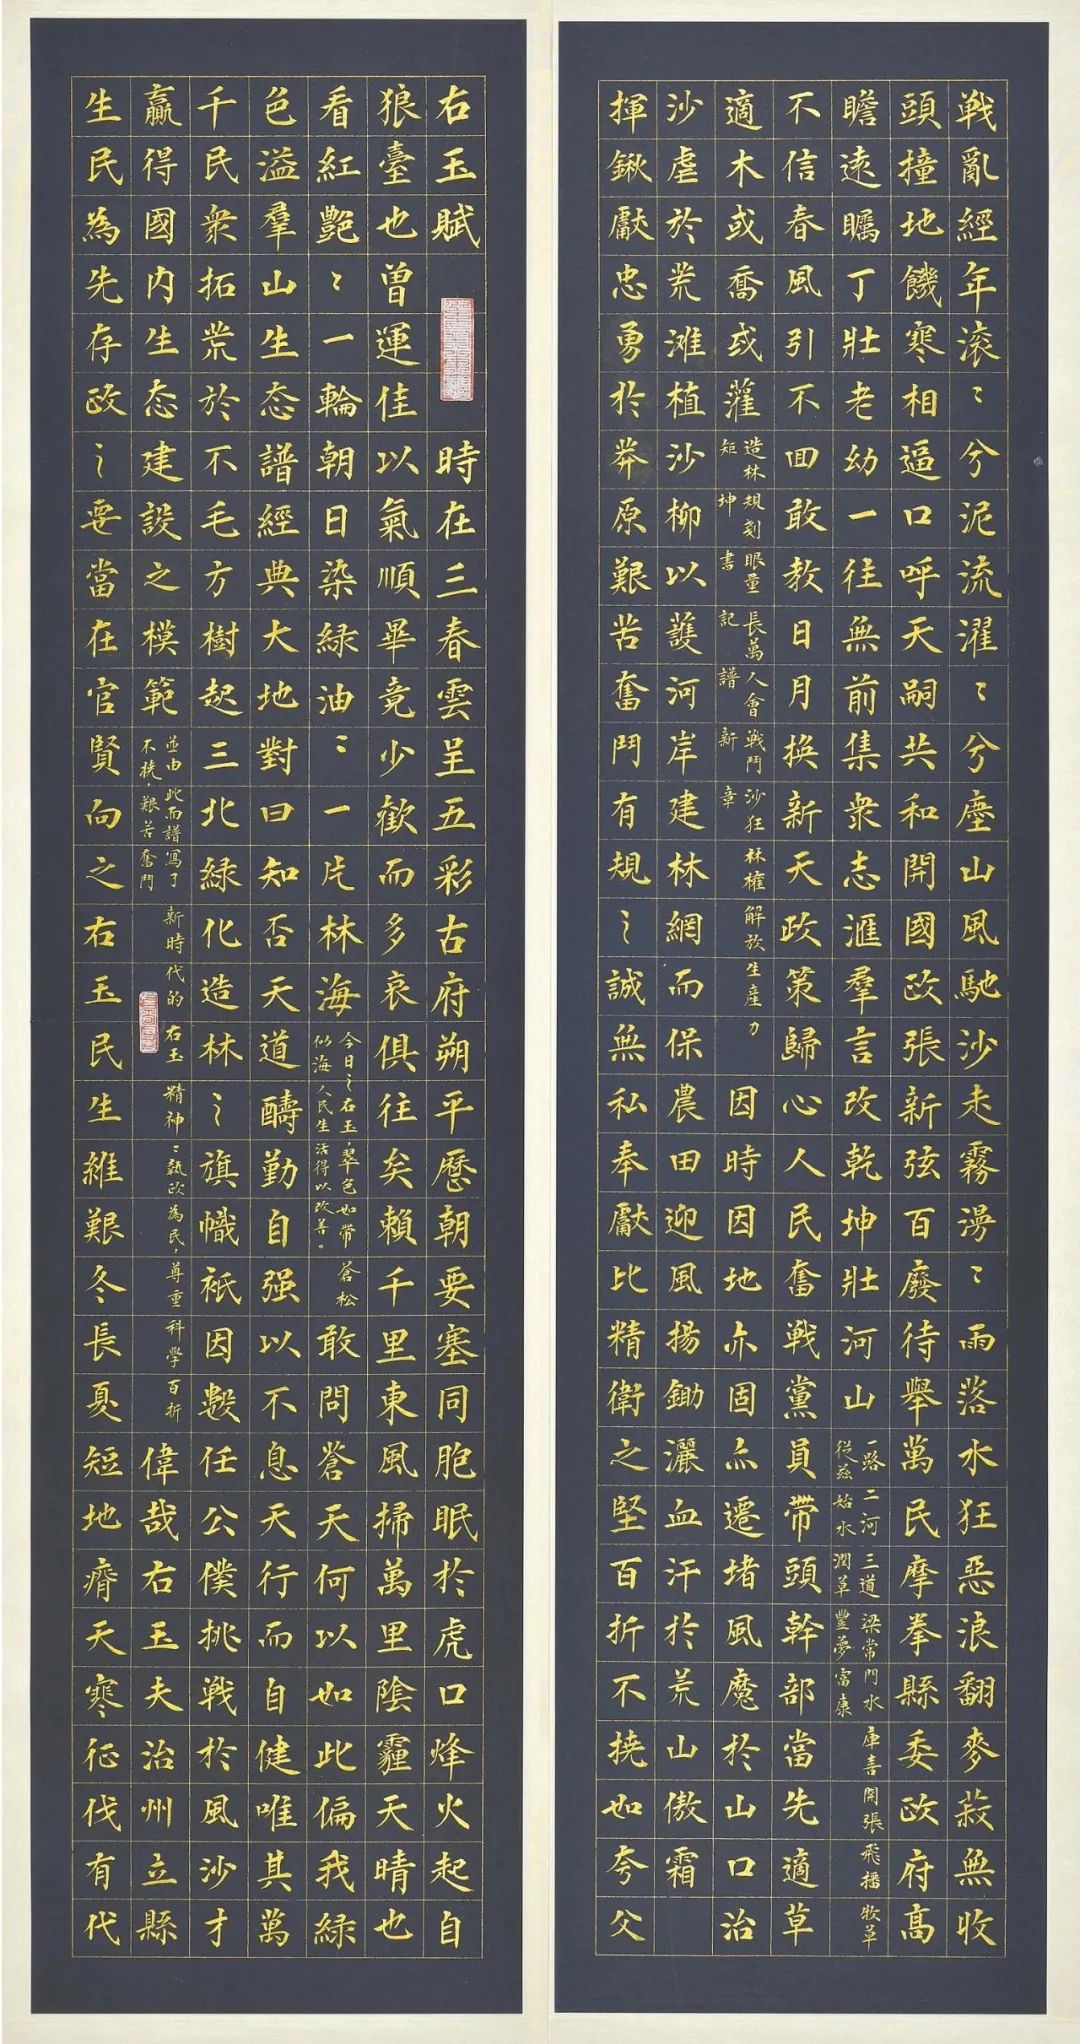 右玉賦
時在三春雲呈五彩古府朔平歷朝要塞同胞眠於虎口烽火起自
狼臺也曾運佳以氣順畢竟少歡而多哀俱往矣賴千里東風掃萬里陰霾天晴也
看紅艷〻一輪朝日染綠油〻一片林海
今日之右玉,翠色如帶蒼松
似海人民生活得以改善。
敢問蒼天何以如此偏我綠
色溢羣山生态譜經典大地對曰知否天道酬勤自强以不息天行而自健唯其萬
千民衆拓荒於不毛方樹起三北綠化造林之旗幟祇因數任公僕挑戰於風沙才
贏得國内生态建設之模範
並由此而譜寫了新時代的右玉精神〻執政為民,尊重科學百折
不撓,艱苦奮鬥
偉哉右玉夫治州立縣
生民為先存政之要當在官賢向之右玉民生維艱冬長夏短地瘠天寒征伐有代
戰亂經年滚〻兮泥流濯〻兮塵山風馳沙走霧漫〻雨落水狂惡浪翻麥菽無收
頭撞地饑寒相逼口呼天嗣共和開國政張新弦百廢待舉萬民摩拳縣委政府高
瞻遠矚丁壯老幼一往無前集衆志滙羣言改乾坤壯河山
一路二河三道梁常門水庫喜開張飛播牧草
從茲始水潤草豐夢富康
不信春風引不回敢教日月換新天政策歸心人民奮戰黨員帶頭幹部當先適草
適木或喬或灌
造林規劃眼量長萬人會戰鬥沙狂林権解放生産力
矩坤書記譜新章
因時因地亦固亦遷堵風魔於山口治
沙虐於荒滩植沙柳以護河岸建林網而保農田迎風揚鋤灑血汗於荒山傲霜
揮鍬獻忠勇於莽原艱苦奮鬥有規之誠無私奉獻比精衛之堅百折不撓如夸父